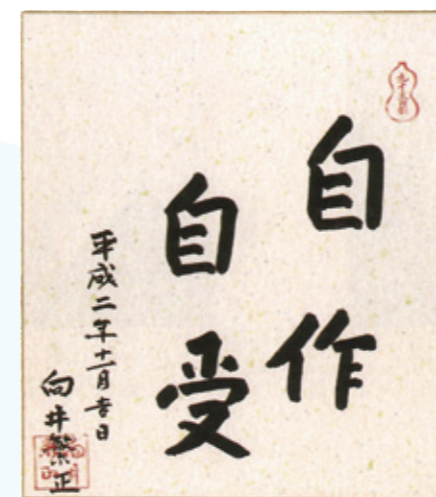 自作
自受
平成二年十一月吉日
向井繁正